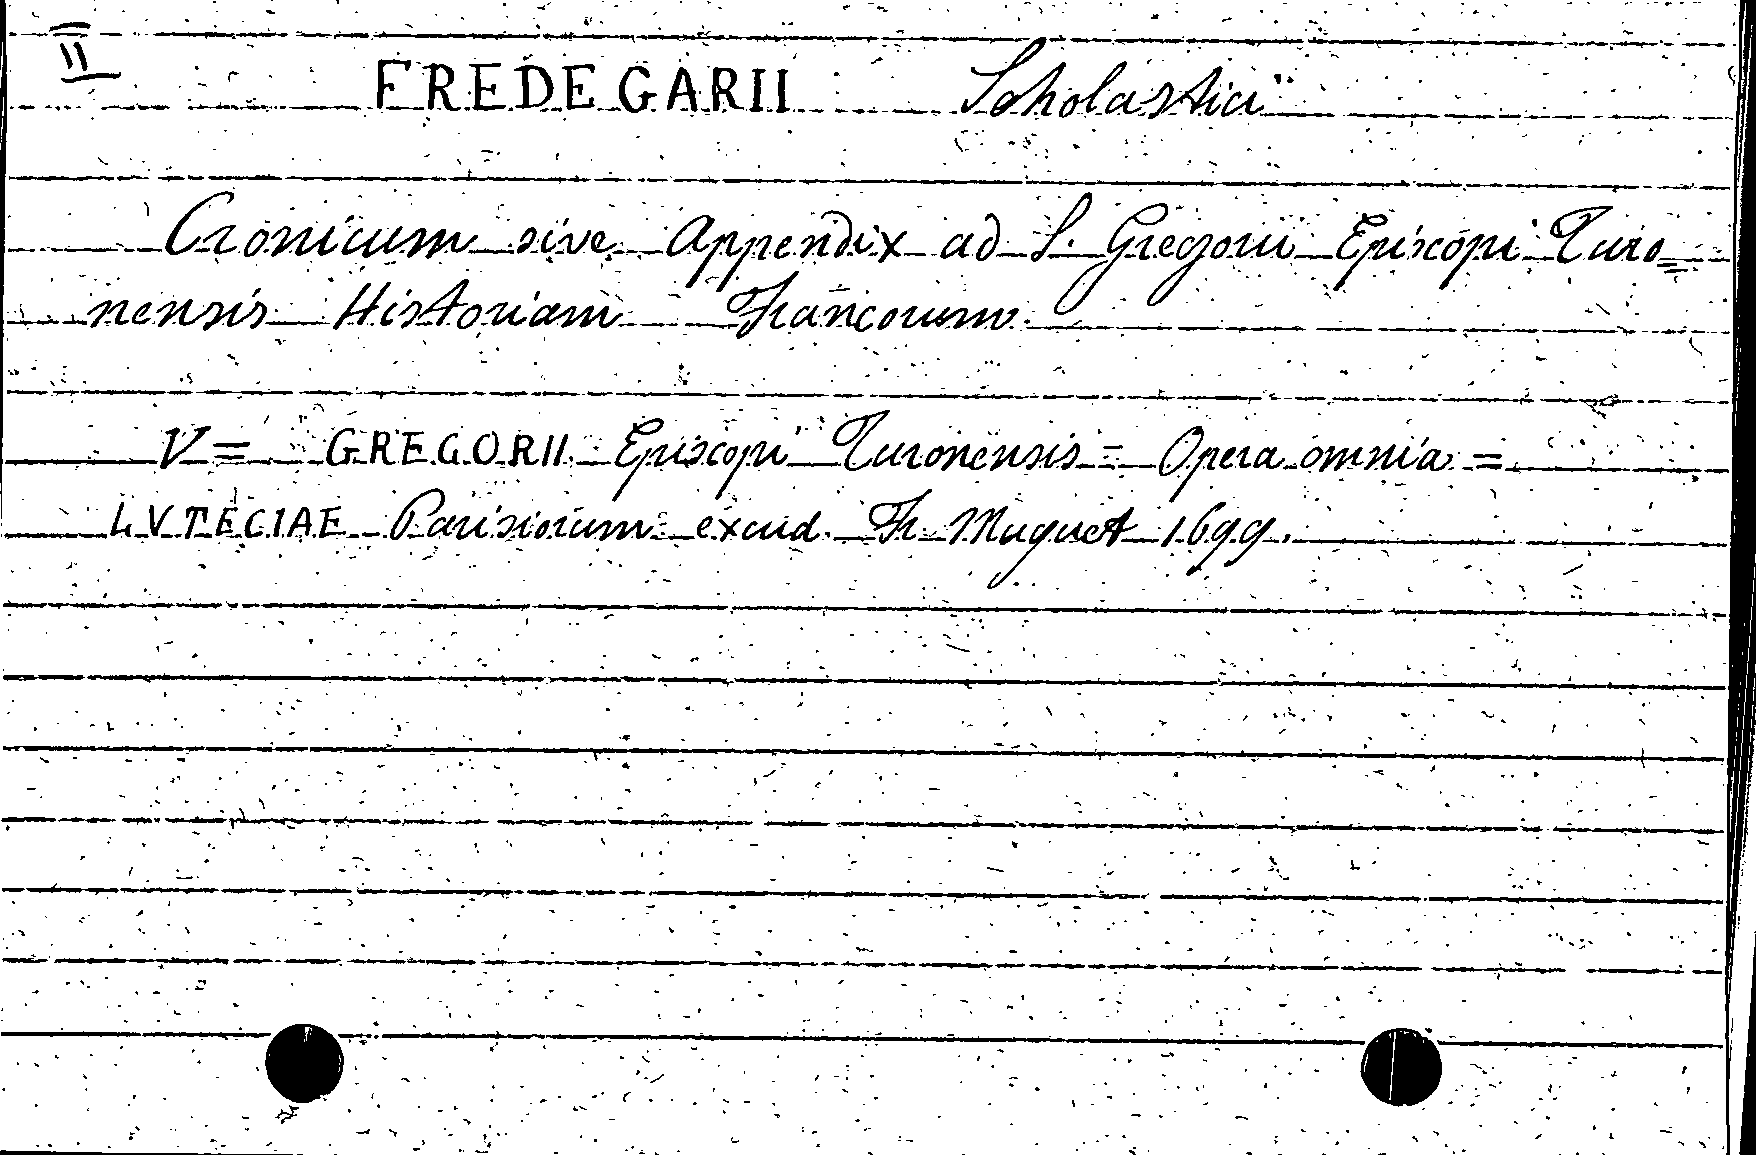 II
FREDEGARII Scholastici
Cronicum sive Appendix ad S. Gregorii Episcopi Turo=
nensis Historiam Francorum.
V= GREGORII Episcopi Turonensis = Opera omnia =
LVTECIAE Parisiorum excud. Fr. Muguet 1699.